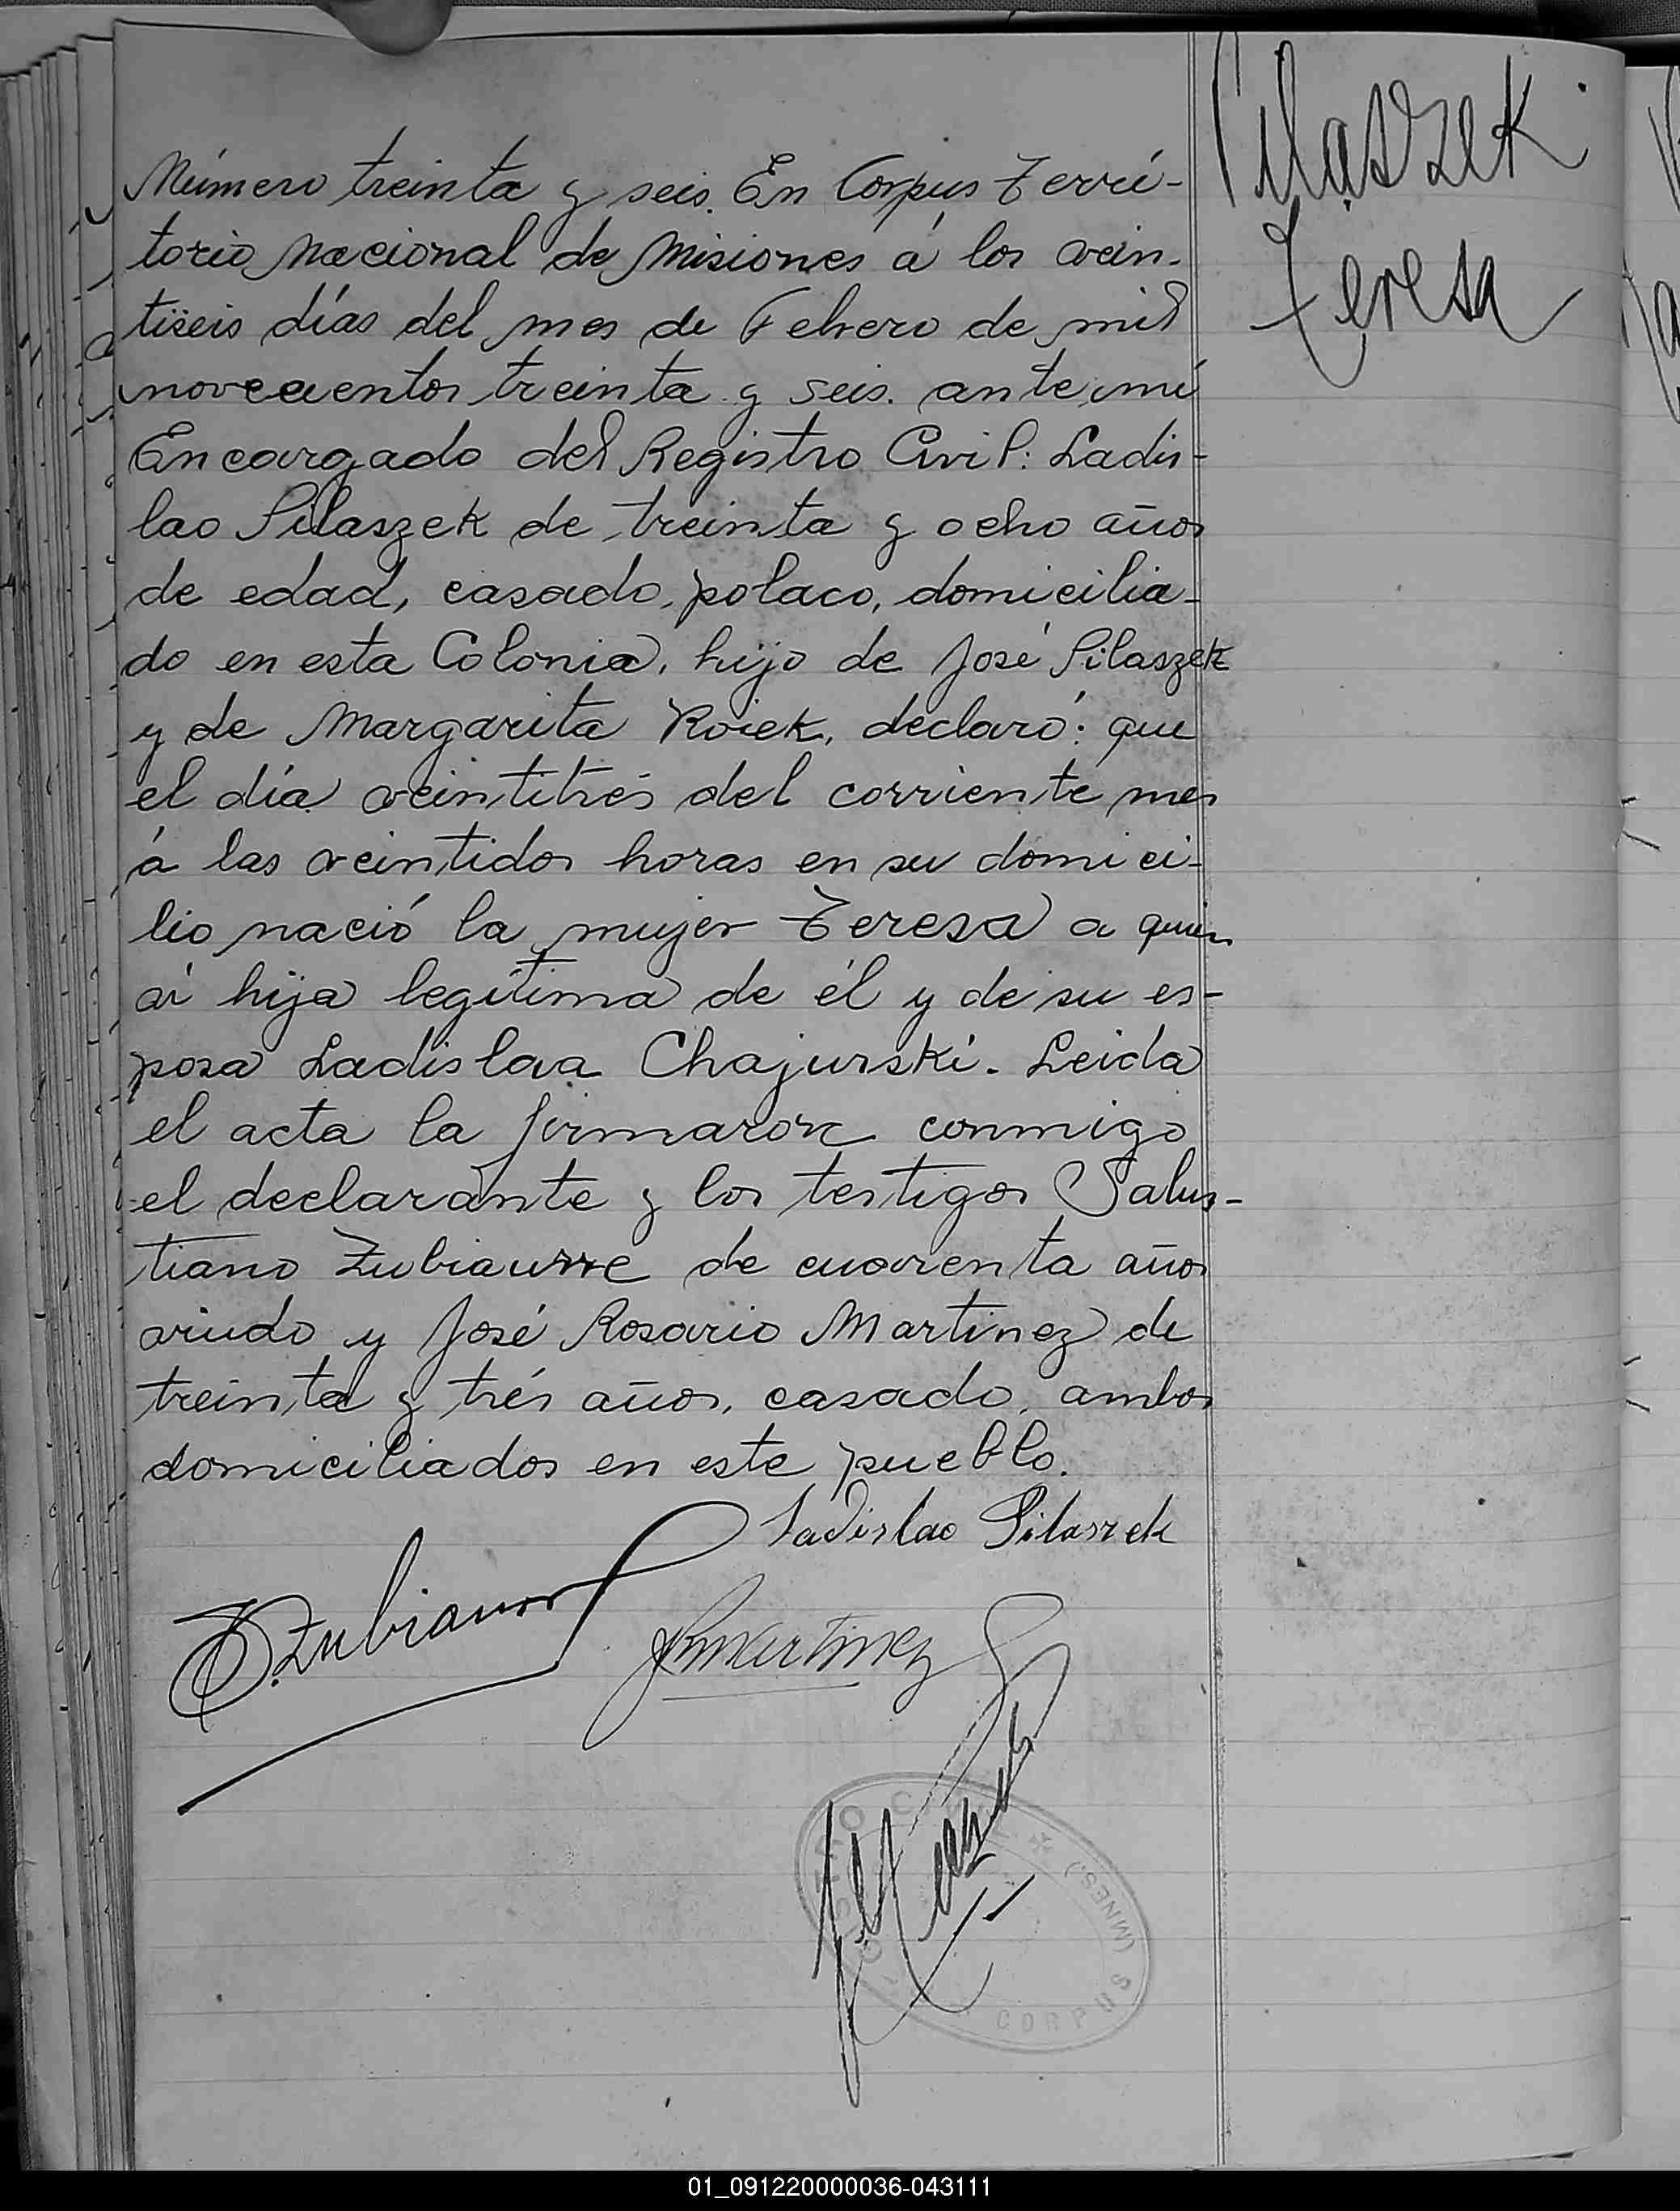 Pilaszek
Teresa
Número treinta y seis. En Corpus Terri-
torio Nacional de Misiones á los vein-
tiseis días del mes de Febrero de mil
novecientos treinta y seis. ante mí
Encargado del Registro Civil: Ladis-
lao Pilaszek de treinta y ocho años
de edad, casado, polaco, domicilia-
do en esta Colonia, hijo de José Pilaszek
y de Margarita Roiek, declaró: que
el día veintitrés del corriente mes
á las veintidos horas en su domici-
lio nació la mujer Teresa a quien
ví hija legítima de él y de su es-
posa Ladislava Chajurski. Leida
el acta la firmaron conmigo
el declarante y los testigos Salus-
tiano Zubiaurre de cuarenta años
viudo y José Rosario Martinez de
treinta y trés años, casado, ambos
domiciliados en este pueblo.
Ladislao Pilaszek
S. Zubiaurre
JRMartinez
CORPUS
(MNES)
01_091220000036-043111